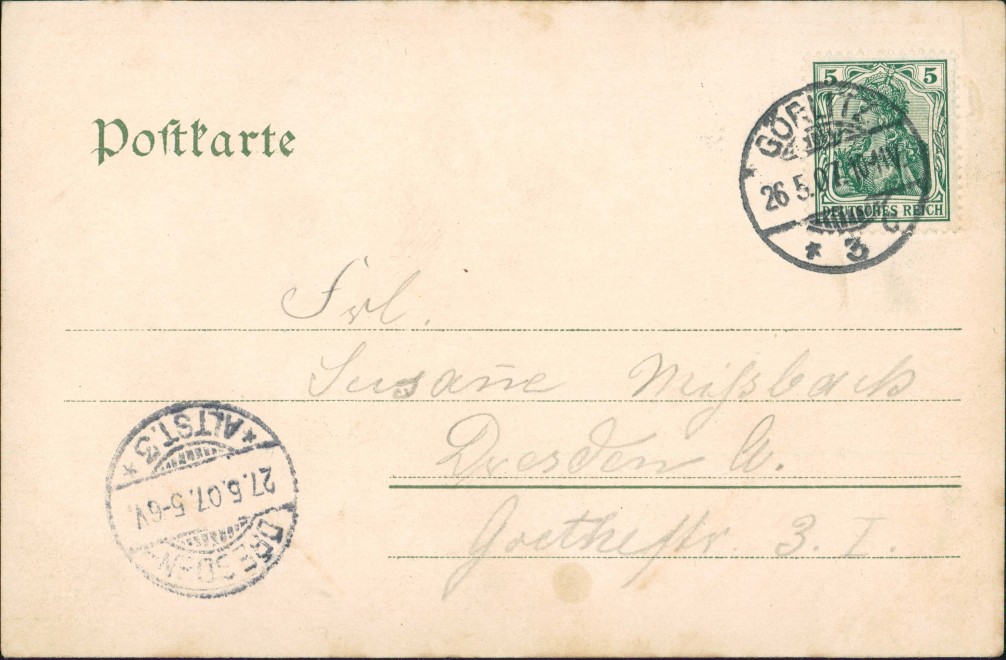 Postkarte
5 5
DEUTSCHES REICH
GÖRLITZ
26.5.07.10-11V.
* 3 c
Frl.
Susan̄e Missbach
Dresden A.
Goethestr. 3. I.
DRESDEN
27.5.07.5-6V.
* ALTST. 3 *